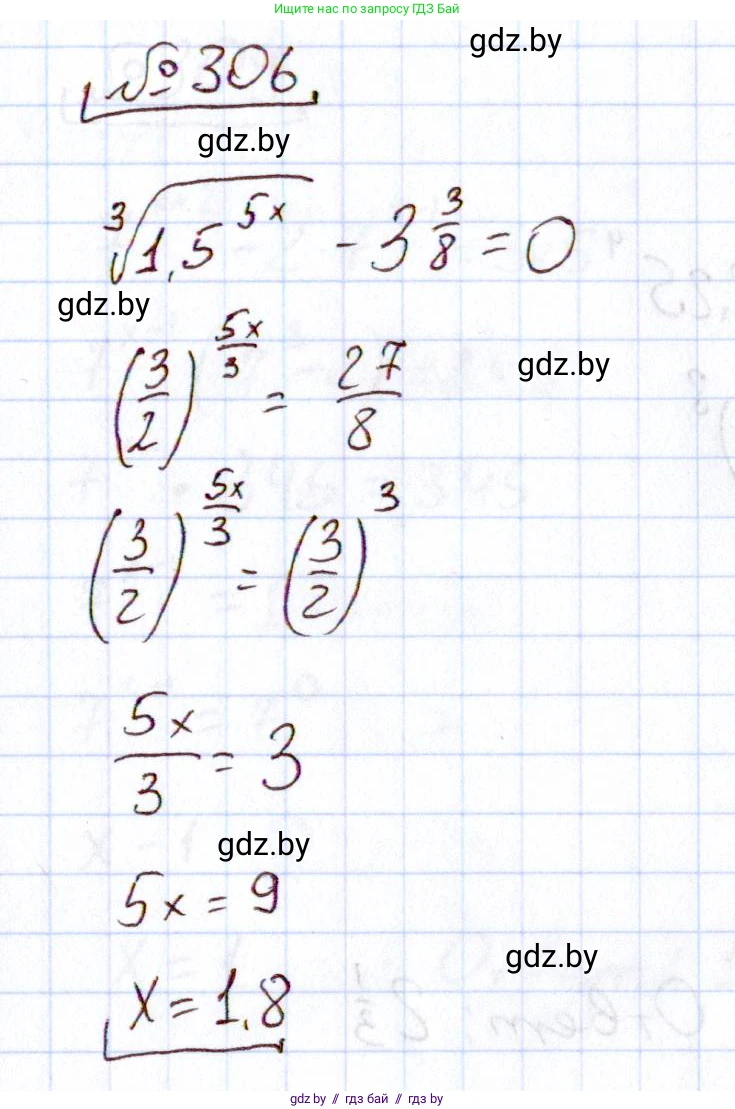 Ищите нас по запросу ГДЗ Бай
gdz.by
№ 306.
gdz.by
∛(1,5^(5x)) - 3 3/8 = 0
gdz.by
(3/2)^(5x/3) = 27/8
gdz.by
(3/2)^(5x/3) = (3/2)^3
5x/3 = 3
gdz.by
5x = 9
gdz.by
x = 1,8
gdz.by // гдз бай // гдз by